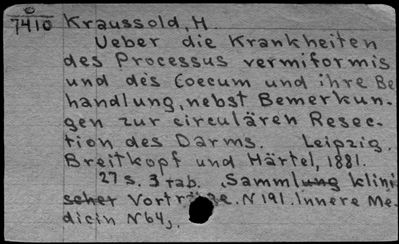 O
7410
Kraussold, H.
Ueber die Krankheiten
des Processus vermiformis
und des Coecum und ihre Be
handlung, nebst Bemerkun-
gen zur circulären Resec-
tion des Darms. Leipzig.
Breitkopf und Härtel, 1881.
27 s. 3 tab. Sammlung klini
scher Vorträge. N 191. Innere Me-
dicin N 64,